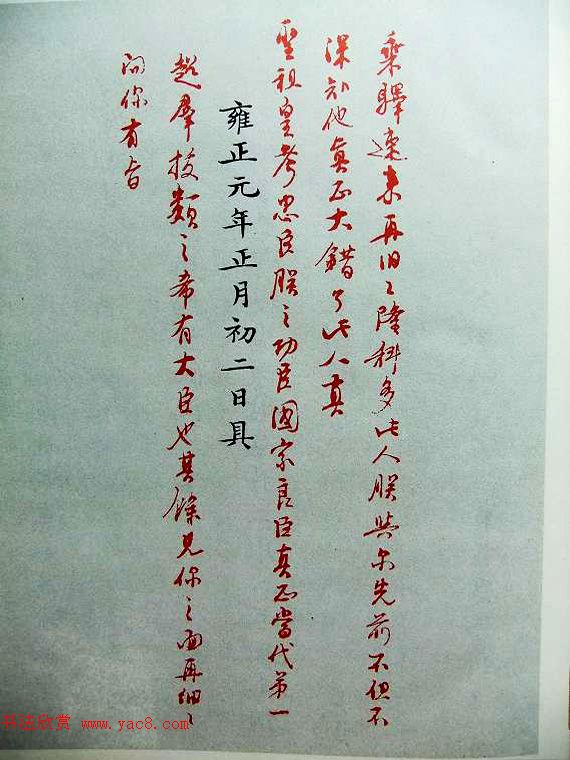 乘驛速来再旧〻隆科多此人朕與尔先前不但不
深知他真正大錯了此人真
聖祖皇考忠臣朕之功臣國家良臣真正當代第一
雍正元年正月初二日具
超羣拔類之希有大臣也其餘見你之面再細〻
問你有旨
书法欣赏 www.yac8.com